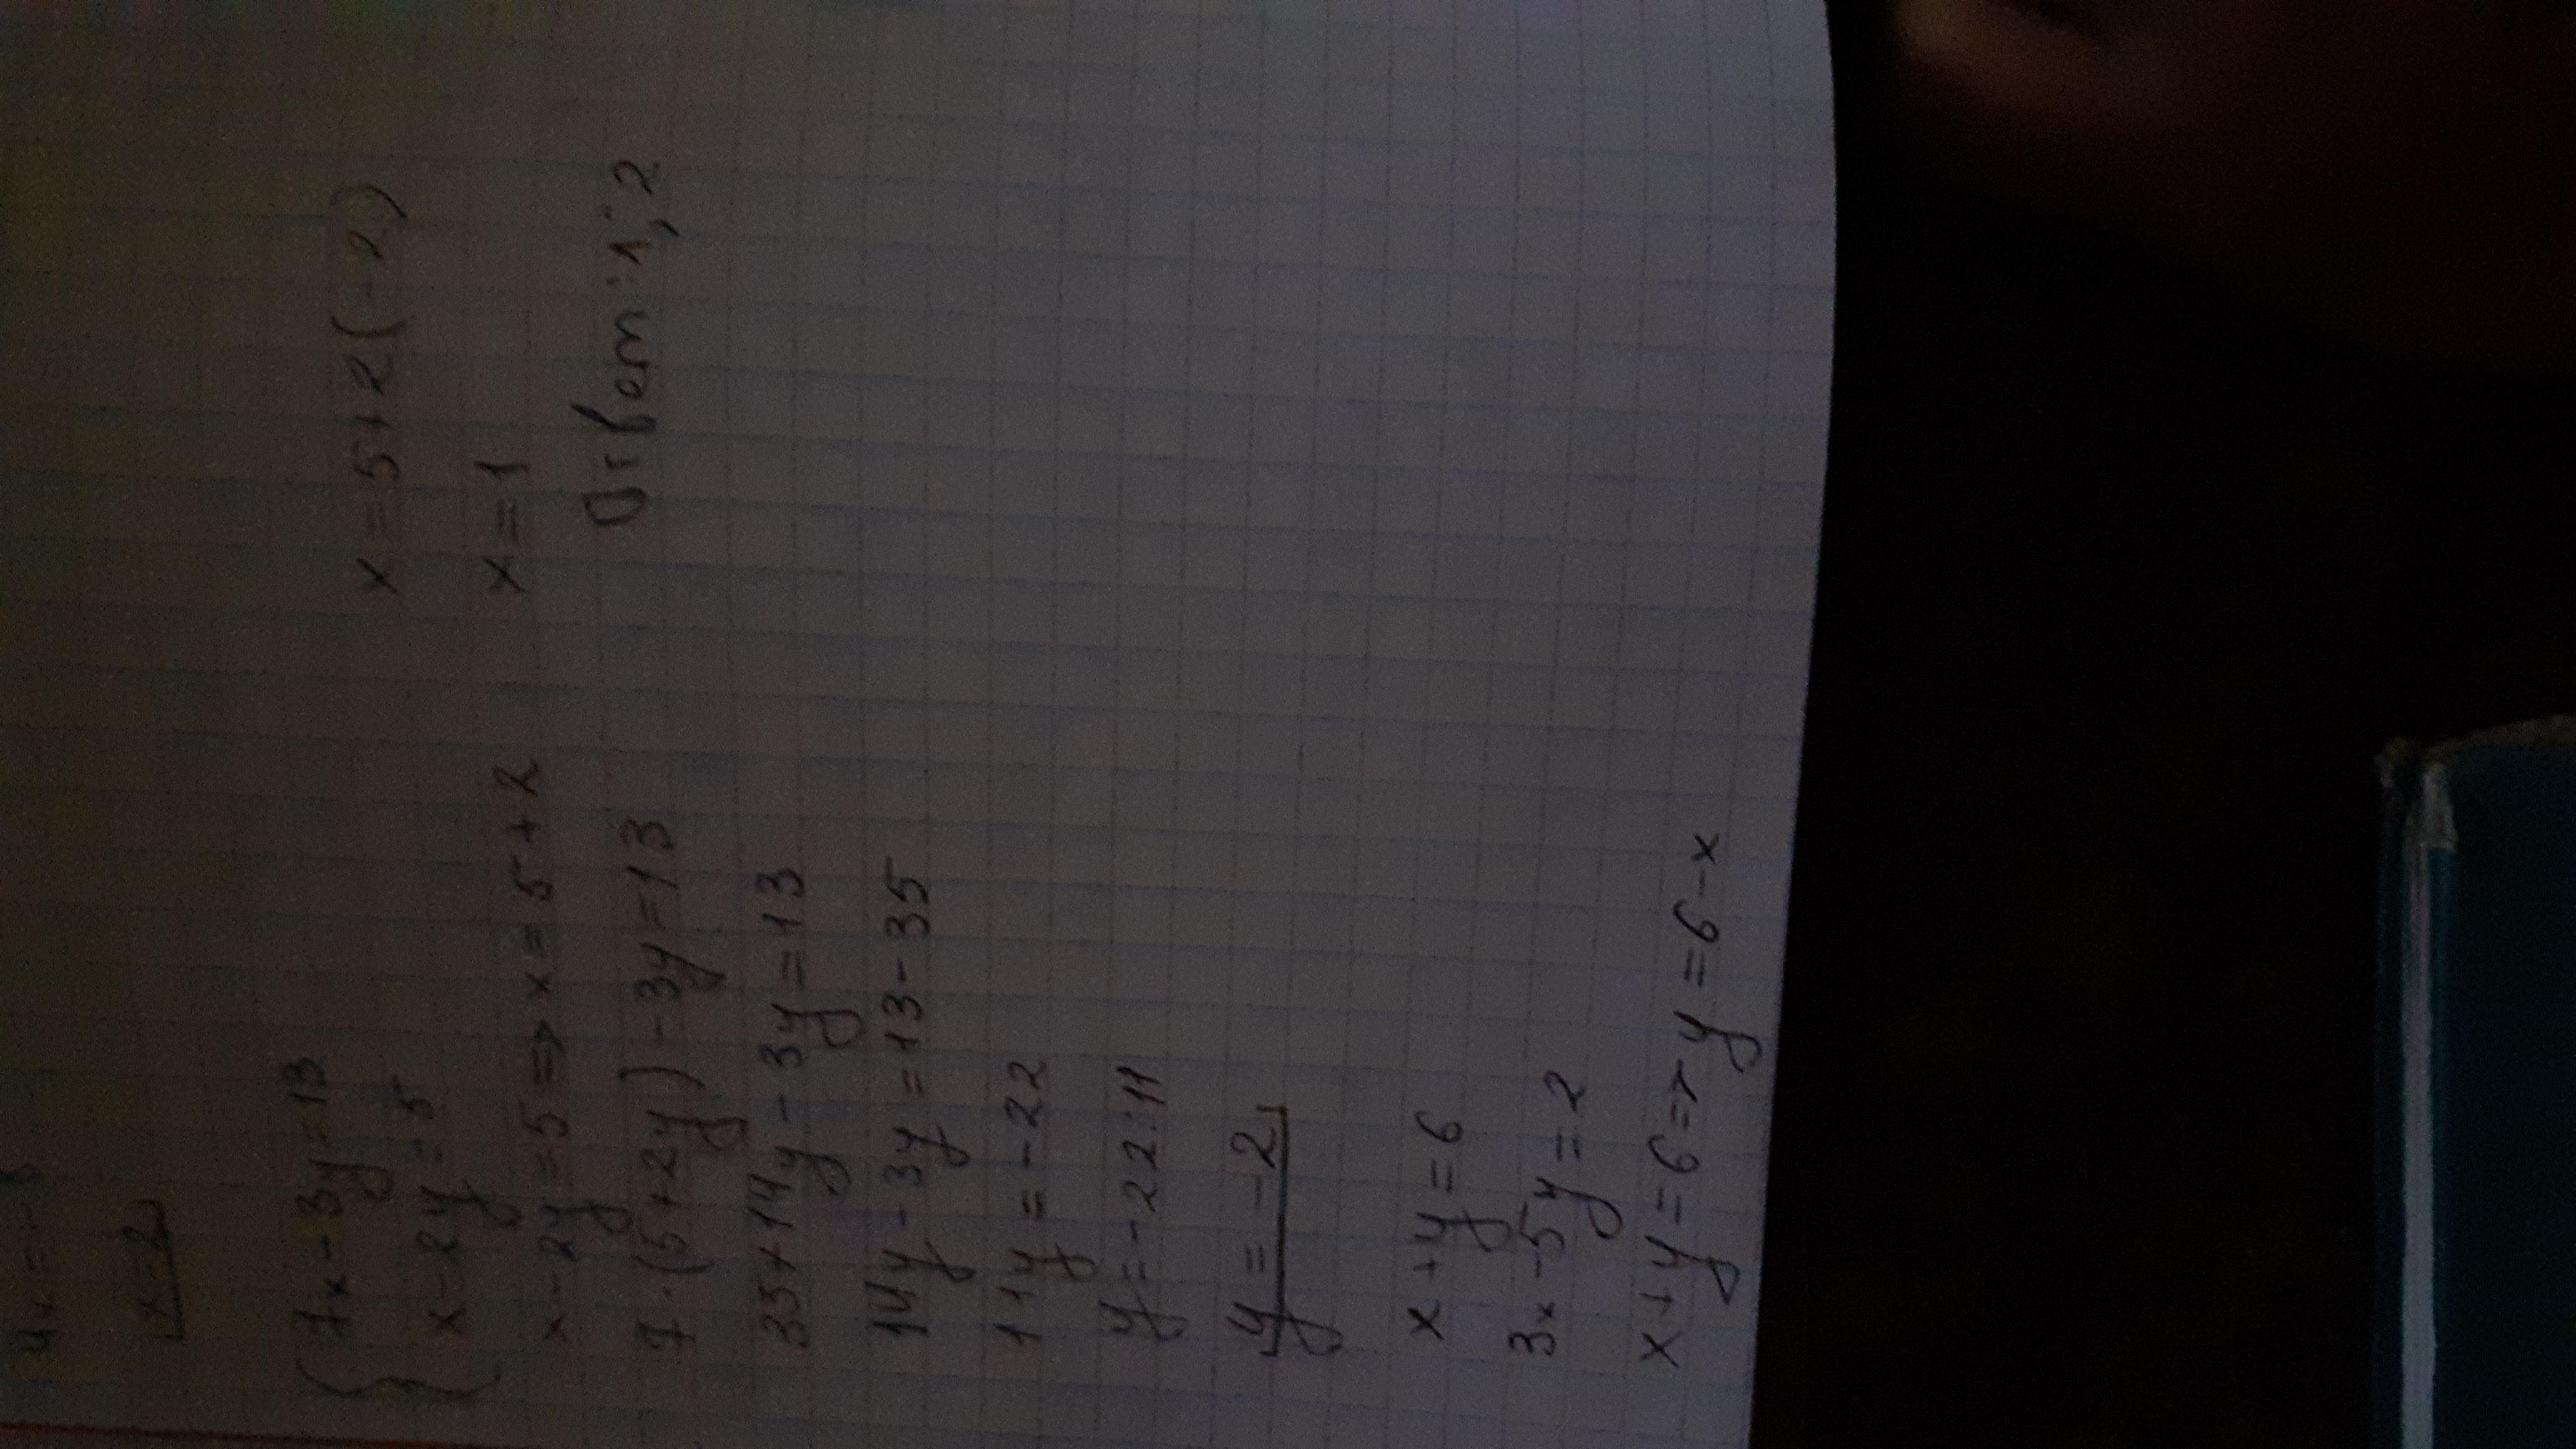 4x = -8
x - 2
{ 7x - 3y = 13
x - 2y = 5
x - 2y = 5 => x = 5 + 2
7 · (5 + 2y) - 3y = 13
35 + 14y - 3y = 13
14y - 3y = 13 - 35
11y = -22
y = -22:11
y = -2
x = 5 + 2(-2)
x = 1
Ответ: 1; 2
x + y = 6
3x - 5y = 2
x + y = 6 => y = 6 - x